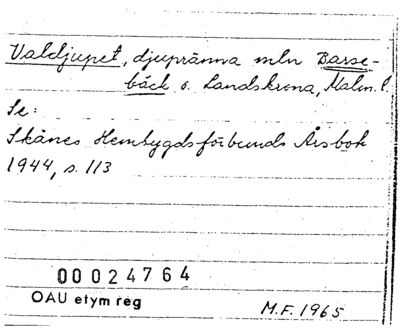 Valdjupet, djupränna mln Barse-
bäck o. Landskrona, Malm. l.
Se:
Skånes Hembygdsförbunds Årsbok
1944, s. 113
00024764
OAU etym reg
M.F. 1965